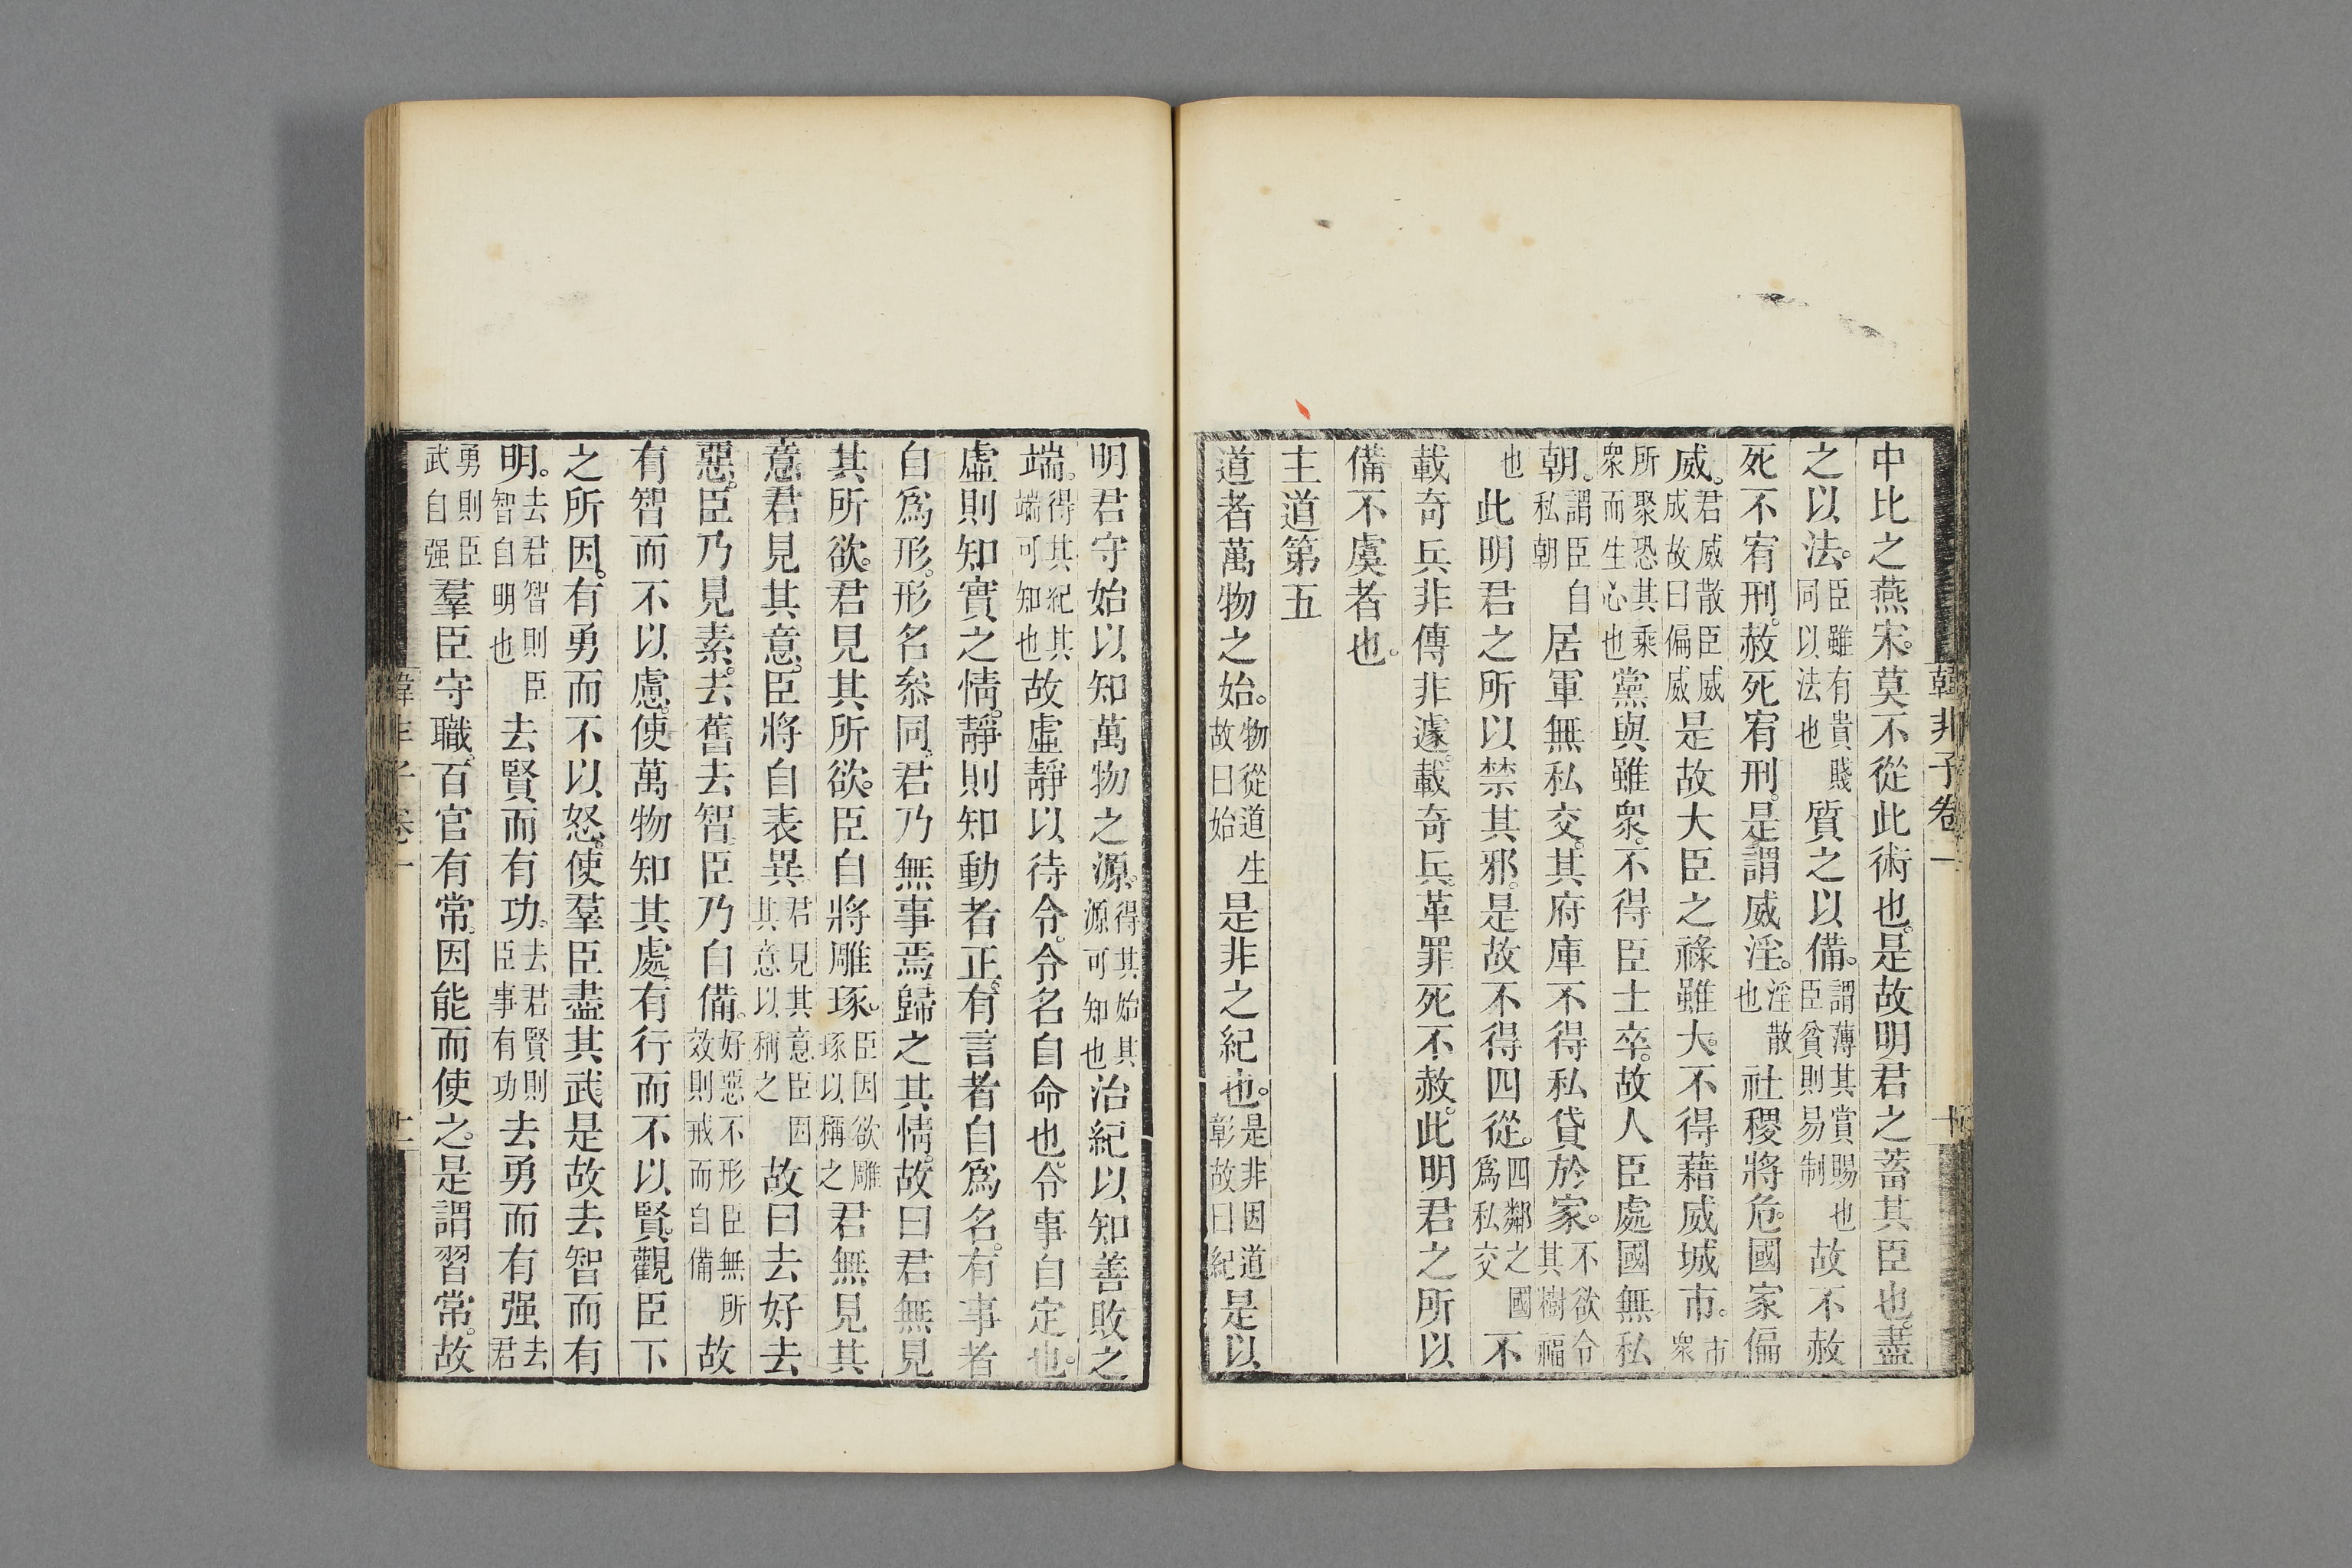 韓非子卷一
十
中比之燕宋。莫不從此術也。是故明君之蓄其臣也。盡
之以法。臣雖有貴賤同以法也質之以備。謂薄其賞賜也臣貧則易制故不赦
死不宥刑。赦死宥刑。是謂威淫。淫散也社稷將危。國家偏
威。君威散臣威成故曰偏威是故大臣之祿雖大。不得藉威城市。市衆
所聚恐其乘衆而生心也黨與雖衆。不得臣士卒。故人臣處國無私
朝。謂臣自私朝居軍無私交。其府庫不得私貸於家。不欲令其樹福
也此明君之所以禁其邪。是故不得四從。四鄰之國爲私交不
載奇兵非傳非遽。載奇兵。革罪死不赦。此明君之所以
備不虞者也。
主道第五
道者萬物之始。物從道生故曰始是非之紀也。是非因道彰故曰紀是以
明君守始以知萬物之源。得其始其源可知也治紀以知善敗之
端。得其紀其端可知也故虛靜以待令。令名自命也。令事自定也。
虛則知實之情。靜則知動者正。有言者自爲名。有事者
自爲形。形名叅同。君乃無事焉歸之其情。故曰君無見
其所欲。君見其所欲。臣自將雕琢。臣因欲雕琢以稱之君無見其
意。君見其意。臣將自表異。君見其意臣因其意以稱之故曰去好去
惡。臣乃見素。去舊去智。臣乃自備。好惡不形臣無所效則戒而自備故
有智而不以慮。使萬物知其處。有行而不以賢。觀臣下
之所因。有勇而不以怒。使羣臣盡其武。是故去智而有
明。去君智則臣智自明也去賢而有功。去君賢則臣事有功去勇而有强去君
勇則臣武自强羣臣守職。百官有常。因能而使之。是謂習常。故
韓非子卷一